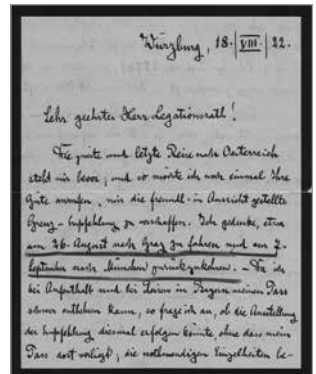 Würzburg, 18. | VIII | 22.
Sehr geehrter Herr Legationsrath!
Die zweite und letzte Reise nach Oesterreich
steht mir bevor; und so möchte ich noch einmal Ihre
Güte anrufen, mir die freundl. in Aussicht gestellte
Grenz-Empfehlung zu verschaffen. Ich gedenke, etwa
am 26. August nach Graz zu fahren und am 7.
September nach München zurückzukehren. – Da ich
bei Aufenthalt und bei Reisen in Bayern meinen Pass
entbehren kann, so frage ich an, ob die Ausstellung
der Empfehlung diesmal erfolgen könnte ohne dass mein
Pass dort vorliegt; die nothwendigen Einzelheiten be-